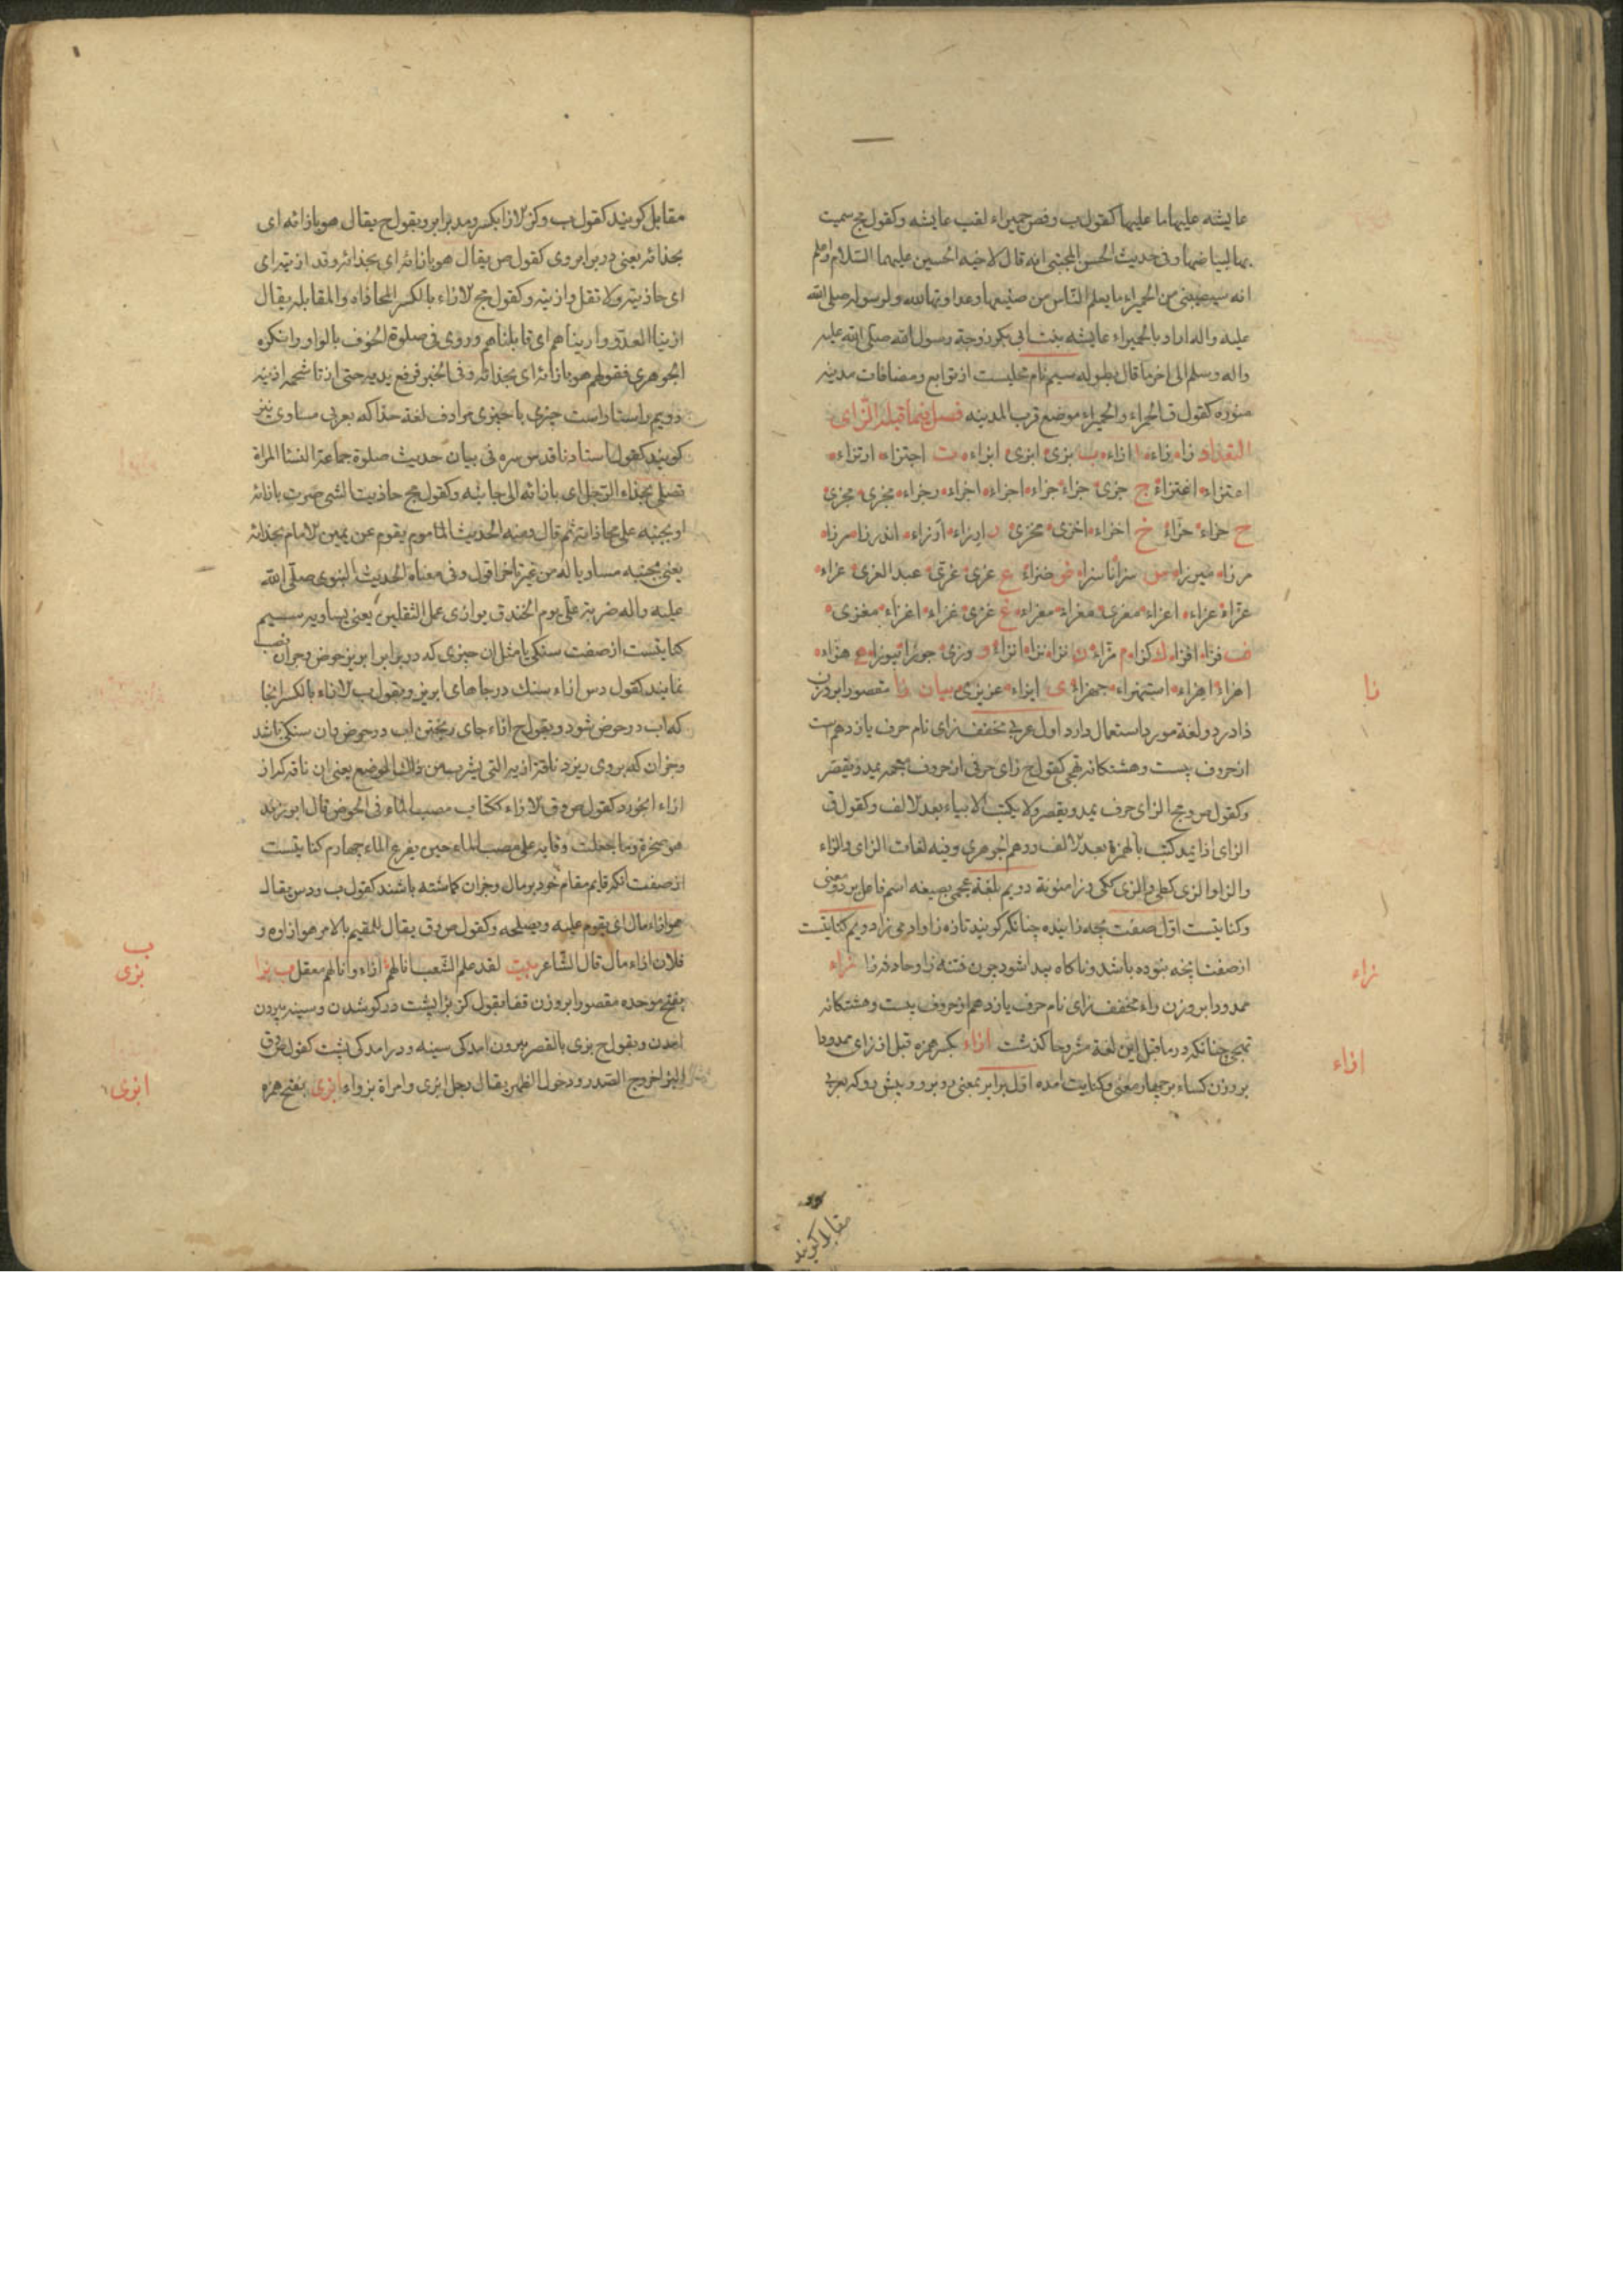 عایشه علیها ما علیها کقول ب و فص حمیراء لقب عایشه و کقول مج سمیت
بها لبیاضها و فی حدیث الحسن المجتبی انه قال لاخیه الحسین علیهما السلام و اعلم
انه سیصیبنی من الحمیراء ما یعلم الناس من صنیعها و عداوتها لله و لرسوله صلی الله
علیه واله اراد بالحمیراء عایشه بنت ابی بکر زوجة رسول الله صلی الله علیه
واله و سلم الی اخر ما قال بطوله سیم نام محلیست از توابع و مضافات مدینه
منوره کقول ق الحمراء و الحمیراء موضع قرب المدینه فصل فیما قبله الزای
زا زاء ا ازاء ب بزی ابزی ابزاء ت اجتزاء ارتزاء
اعتزاء اغتزاء ج جزی جزاء جزاء اجزاء اجزاء و جزاء مجزی مجزی
ح حزاء حزاء خ اخزاء اخزی مخزی ر ارزاء
مرزاء میرزا س سزا ناسزا ض ضزاء ع عزی عزی عبد العزی عزاء
عزاء عزاء اعزاء معزی معزاء معزاء غ غزی غزاء اغزاء مغزی
ف فزاء افزاء ك کزاء م مزاء ن نزاء نزاء انزاء و وزی جوزا نیوزا ه هزاء
اهزاء اهزاء استهزاء جهزاء ی ایزاء عزیزی بیان زا مقصورا بر وزن
ذا در دو لغة مورد استعمال دارد اول عربی مخفف زای نام حرف یازدهم است
از حروف بیست و هشتکانه تهجی کقول ح زای حرفی از حروف معجمه یمد و یقصر
و کقول ص و مج الزای حرف یمد و یقصر و لا یکتب الا بیاء بعد الالف و کقول ق
الزای اذا یمد کتب بالهمزة بعد الالف و وهم الجوهری و فیه لغات الزای و الزاء
و الزا و الزی کطی و الزی ککی و زا منونة دویم بلغة عجمی بصیغه اسم فاعل بر دو معنی
و کنایتست اول صفت بچه زاینده چنانکه کویند تازه زا و اد می زا دویم کنایتست
از صفت انچه نبوده باشد و ناکاه پیدا شود چون فتنه زا و حادثه زا زاء
ممدودا بر وزن راء مخفف زای نام حرف یازدهم از حروف بیست و هشتکانه
تهجی چنانکه در ما قبل این لغة مشروحا کذشت ازاء بکسر همزه قبل از زای ممدودا
بر وزن کساء بر چهار معنی و کنایت امده اول برابر بمعنی رو برو و پیش رو که بعربی
زا
زاء
ازاء
مقابل کویند
مقابل کویند کقول ب و کنز الازا بکسر و مد برابر و بقول ح یقال هو بازائه ای
بحذائه یعنی در برابر وی کقول ص یقال هو بازائه ای بحذائه و قد ازیته ای
ای حاذیته و لا تقل وازیته و کقول مج الازاء بالکسر المحاذاه و المقابله یقال
ازینا العدو و ازیناهم ای قابلناهم و روی فی صلوة الخوف بالواو و انکره
الجوهری فقولهم هو بازائه ای بحذائه و فی الخبر فرفع یدیه حتی ازتا شحمة اذنیه
دویم راستا راست چیزی با چیزی مرادف لغة حذا که بعربی مساوی نیز
کویند کقول استادنا قدس سره فی بیان حدیث صلوة جماعة النساء المراة
تصلی بحذاء الرجل ای بازائه الی جانبه و کقول مج حاذیت الشی صرت بازائه
او بجنبه علی محاذاته ثم قال و منه الحدیث الماموم یقوم عن یمین الامام بحذائه
یعنی بجنبه مساویا له من غیر تاخر اقول و فی معناه الحدیث النبوی صلی الله
علیه واله ضربة علی یوم الخندق یوازی عمل الثقلین یعنی یساویه سیم
کنایتست از صفت سنکی یا مثل ان چیزی که در برابر ابریز حوض و جز ان نصب
نمایند کقول دس ازاء سنك در جاهای ابریز و بقول ب الازاء بالکسر انجا
که اب در حوض شود و بقول ح ازاء جای ریختن اب در حوض و ان سنکی باشد
و جز ان که بر وی ریزد ناقة ازیه التی یشرب من ذلك الموضع یعنی ان ناقه که از
ازاء ابخورد کقول ص و ق الازاء ککتاب مصب الماء فی الحوض قال ابو زید
هو صخرة و ما جعلت وقایة علی مصب الماء حین یفرغ الماء چهارم کنایتست
از صفت انکه قایم مقام خود بر مال و جز ان کماشته باشند کقول ب و دس یقال
هو ازاء مال ای یقوم علیه و یصلحه و کقول ص و ق یقال للمقیم بالامر هو ازاوه و
فلان ازاء مال قال الشاعر بیت لقد علم الشعب انا لهم ازاء و انا لهم معقل ب بزا
بفتح موحده مقصورا بر وزن قفا فقول کنز بزا پشت در کو شدن و سینه بیرون
امدن و بقول ح بزی بالقصر بیرون امدکی سینه و درامدکی پشت کقول ص و ق
البزا خروج الصدر و دخول الظهر یقال رجل ابزی و امراة بزواء ابزی بفتح همزه
ب
بزی
ابزی